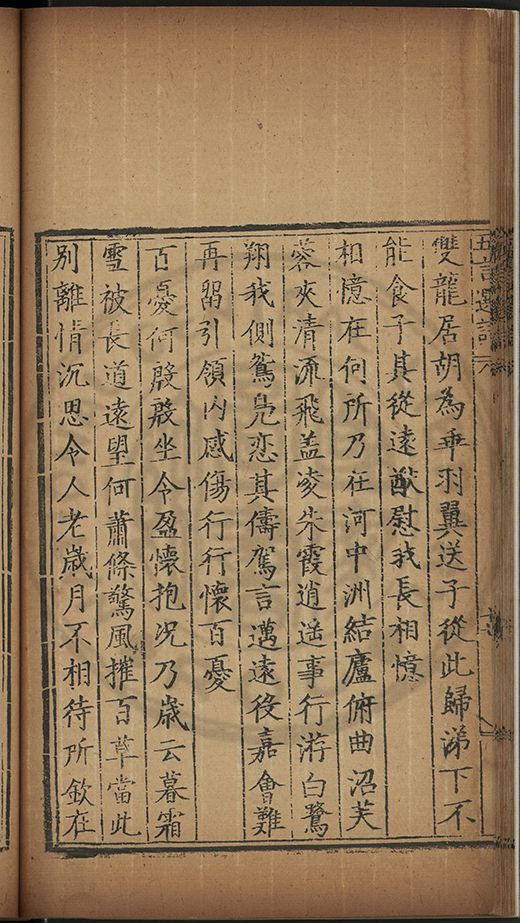 五言選詩
雙龍居胡為乖羽翼送子從此歸涕下不
能食子其從遠猷慰我長相憶
相憶在何所乃在河中洲結廬俯曲沼芙
蓉夾清流飛盖凌朱霞逍遥事行游白鷺
翔我側鴛鳧恋其儔駕言邁遠役嘉會難
再習引領內感傷行行懷百憂
百憂何殷殷坐令盈懷抱况乃歲云暮霜
雪被長道遠望何蕭條驚風摧百草當此
別離情沉思令人老歲月不相待所欽在